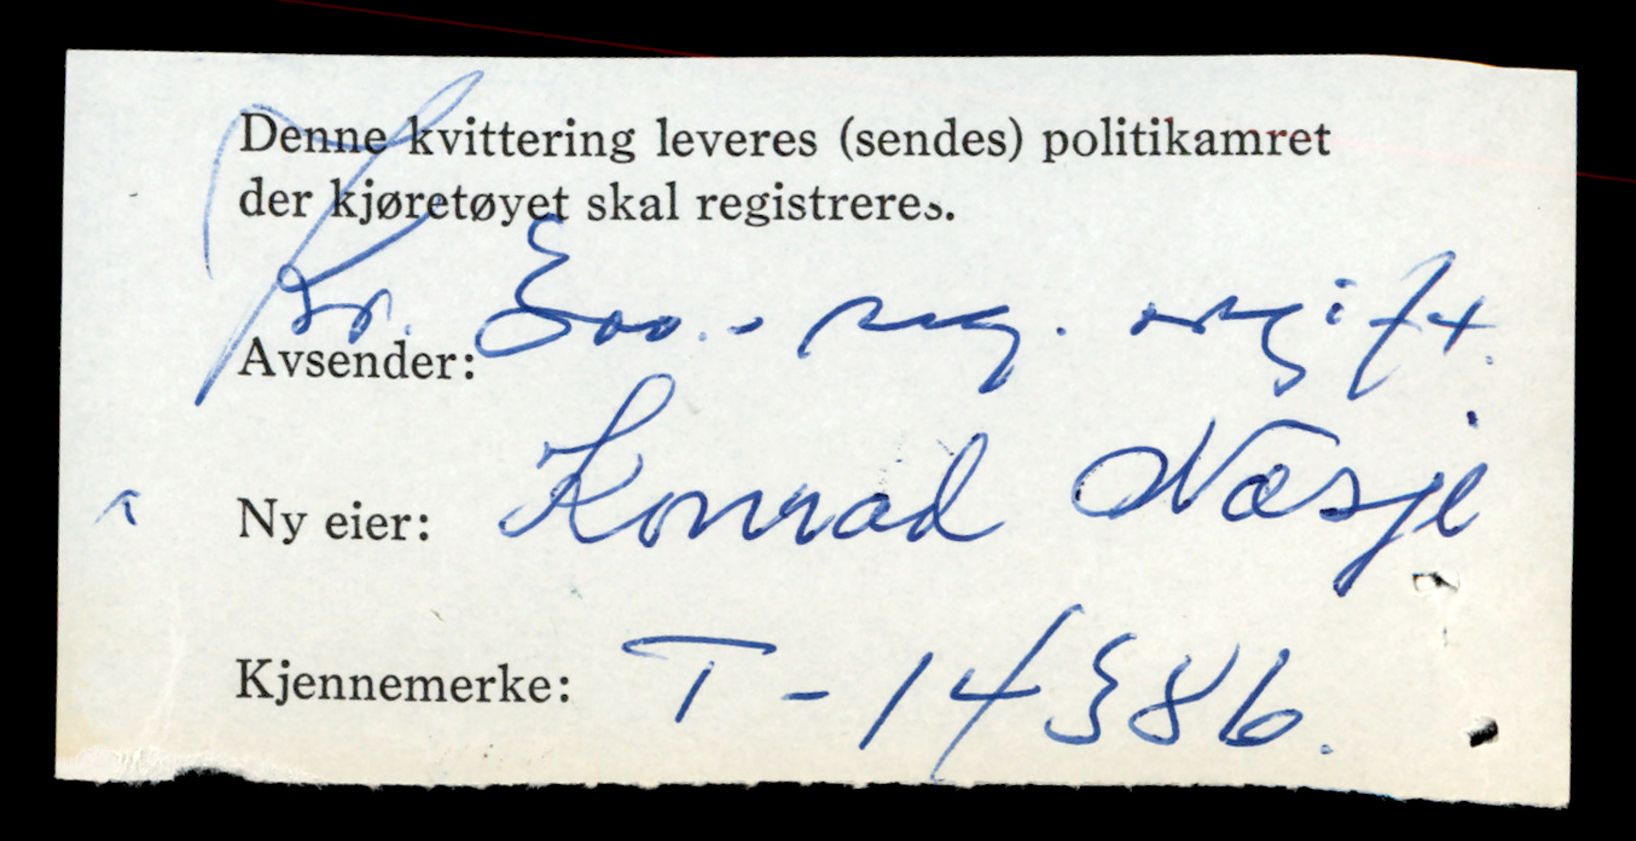 Denne kvittering leveres (sendes) politikamret
der kjøretøyet skal registreres.
Kr. 300.- reg. avgift.
Avsender:
Ny eier: Konrad Næsje
Kjennemerke: T-14386.